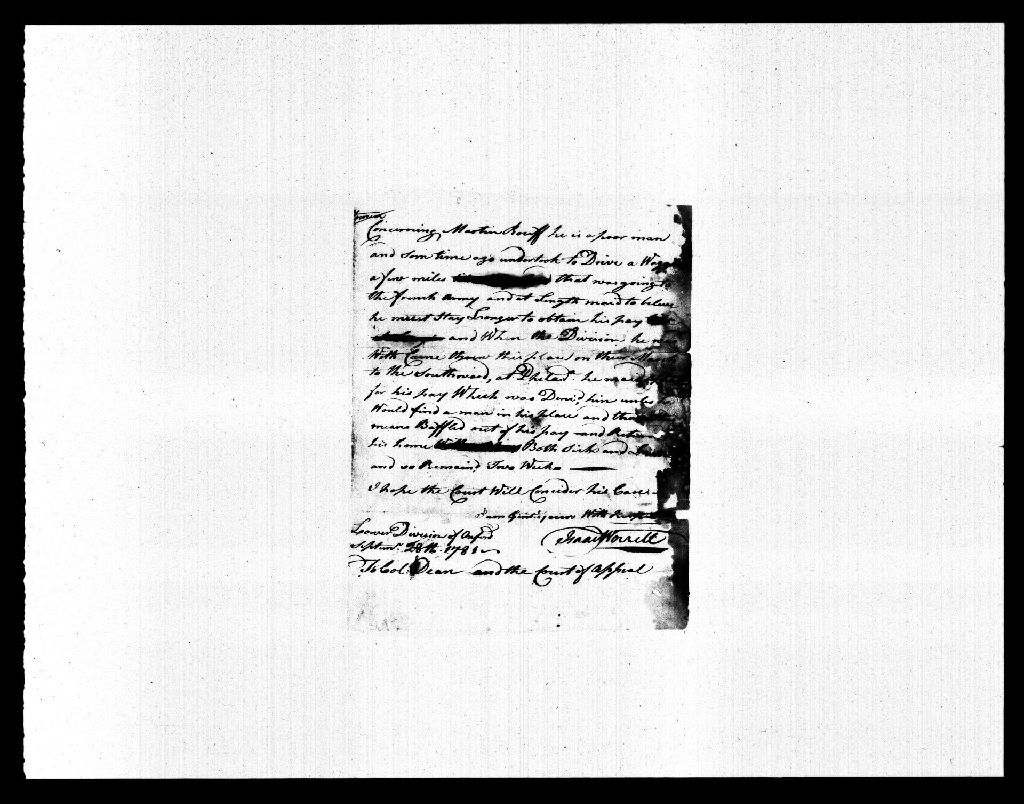 Concerning Martin Bouff he is a poor man
and som time ago undertook to Drive a
a few miles that was going to
the french Army and at Length maid to beleve
he must Stay Longer to obtain his pay
and When the Division he
With Came threw this place on their
to the Southward, at Philada he
for his pay Which was Denid him unles
Would find a man in his place and
means Baffled out of his pay and
his home Both Sick and
and so Remaind Two Weeks
I hope the Court Will Consider his Case
I am Gentn yours With
Lower Division of Oxford
Septmr 28th 1781
Isaac Worrell
To Col. Dean and the Court of Appeal